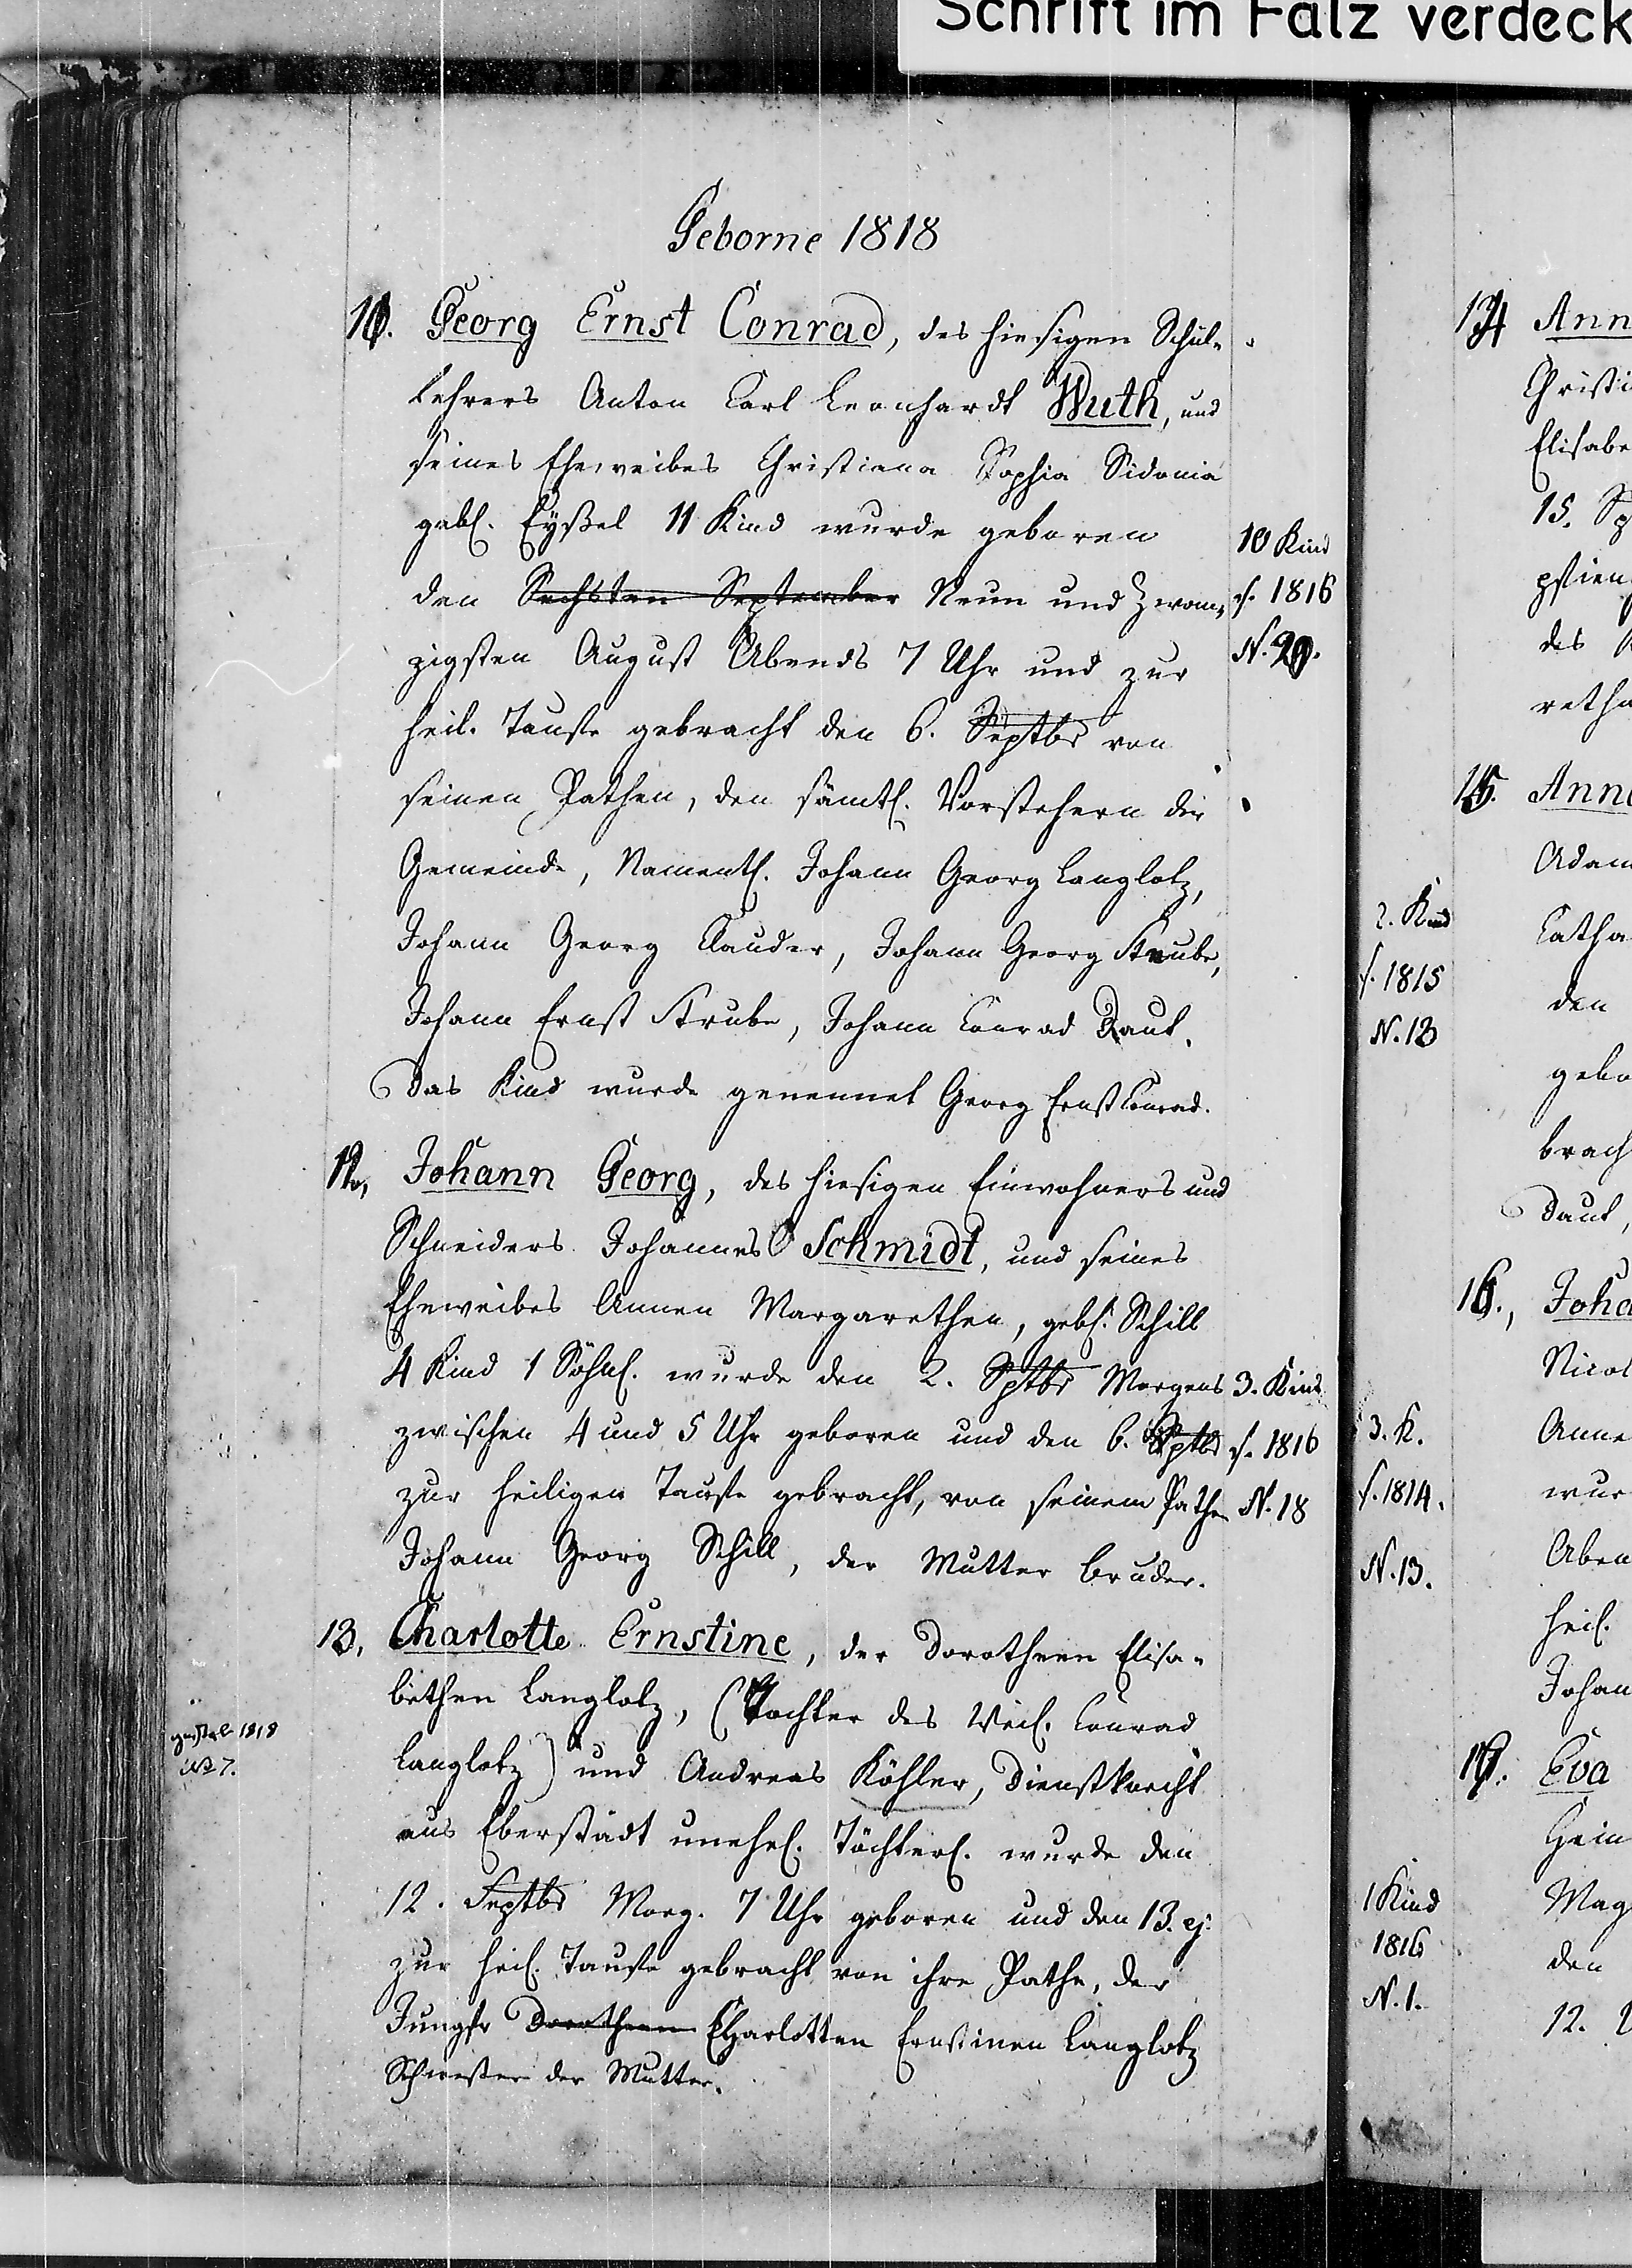 Schrift im Falz verdeck
Geborne 1818
10. Georg Ernst Conrad, des hiesigen Schul-
Lehrers Anton Carl Leonhardt Wuth, und
seines Eheweibes Christiana Sophia Sidonia
gebl. Eyßel 11 Kind wurde geboren
den Sechsten September Neun und Zwan-
zigsten August Abends 7 Uhr und zur
heil. Taufe gebracht den 6. Septbr von
seinen Pathen, den sämtl. Vorstehern der
Gemeinde, Namentl. Johann Georg Langlotz,
Johann Georg Clauder, Johann Georg Strube,
Johann Ernst Strube, Johann Conrad Daut.
Das Kind wurde genennet Georg Ernst Conrad.
10 Kind
s. 1816
N. 20.
Johann Georg, des hiesigen Einwohners und
Schneiders Johannes Schmidt, und seines
Eheweibes Annen Margarethen, gebl. Schill
4 Kind 1 Söhnl. wurde den 2. Sptbr Morgens
zwischen 4 und 5 Uhr geboren und den 6. Sptbr
zur heiligen Taufe gebracht, von seinem Pathen
Johann Georg Schill, der Mutter Bruder.
3. Kind
s. 1816
N. 18
13, Charlotte Ernstine, der Dorotheen Elisa-
bethen Langlotz, (Tochter des Weil. Conrad
Langlotz) und Andreas Köhler, Dienstknecht
aus Eberstädt unehel. Töchterl. wurde den
12. Septbr Morg. 7 Uhr geboren und den 13. ej.
zur heil. Taufe gebracht von ihre Pathe, der
Jungfr Dorotheen Charlotten Ernstinen Langlotz
Schwester der Mutter.
gestorb 1818
No 7.
2. Kind
s. 1815
N. 13
3. K.
s. 1814.
N. 13.
1 Kind
1816
N. 1.
14 Ann
Christi
Elisabe
15. Sp
des
retha
15. Anna
Adam
Catha
den
gebo
brach
Daut,
16., Joha
Nicol
Anne
wur
Aben
heil.
Johan
Eva
Hein
Mag
den
12.